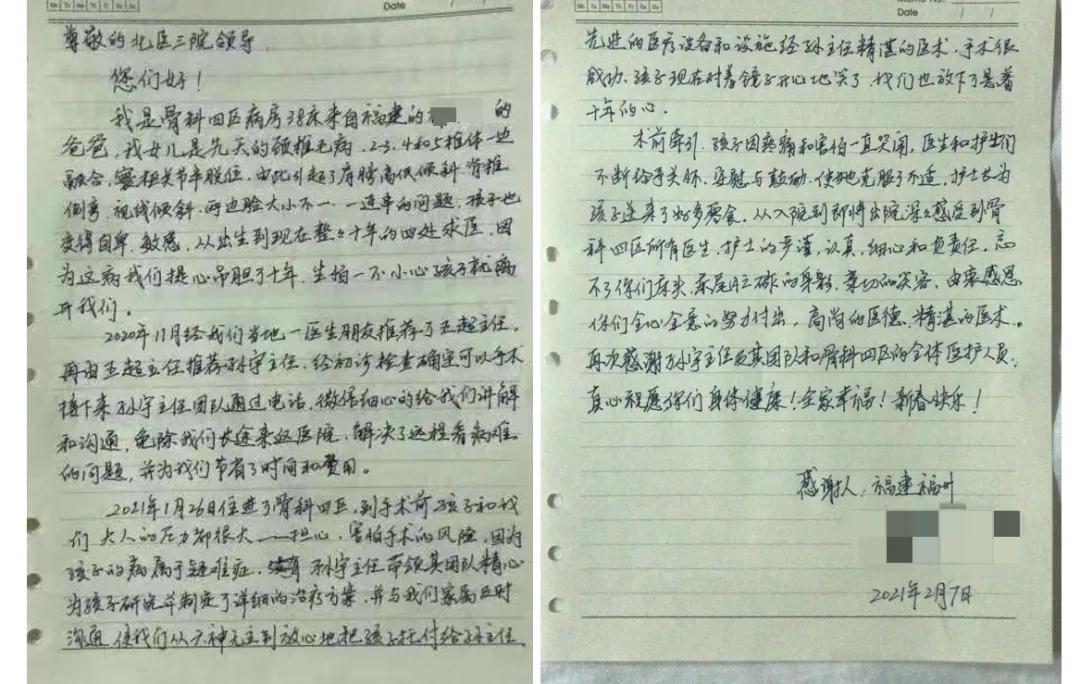 Mo Tu We Th Fr Sa Su
Date
尊敬的北医三院领导
您们好！
我是骨科四区病房38床来自福建的 的
爸爸，我女儿是先天的颈椎毛病，2-3.4和5椎体一边
融合，寰枢关节半脱位，由此引起了肩膀高低倾斜，脊椎
侧弯，视线倾斜，两边脸大小不一，一连串的问题，孩子也
变得自卑、敏感，从出生到现在整整十年的四处求医，因
为这病我们提心吊胆了十年，生怕一不小心孩子就离
开我们。
2020年11月经我们当地一医生朋友推荐了王超主任，
再由王超主任推荐孙宇主任，经初诊检查确定可以手术
接下来孙宇主任团队通过电话，微信细心的给我们讲解
和沟通，免除我们长途来返医院，解决了远程看病难
的问题，并为我们节省了时间和费用。
2021年1月26日住进了骨科四区，到手术前孩子和我
们大人的压力都很大——担心，害怕手术的风险，因为
孩子的病属于疑难症， 孙宇主任带领其团队精心
为孩子研究并制定了详细的治疗方案，并与我们家属及时
沟通，使我们从六神无主到放心地把孩子托付给孙主任，
Memo No.
Date / /
Mo Tu We Th Fr Sa Su
先进的医疗设备和设施经孙主任精湛的医术，手术很
成功，孩子现在对着镜子开心地笑了，我们也放下了悬着
十年的心。
术前牵引，孩子因疼痛和害怕一直哭闹，医生和护士们
不断给予关怀，安慰与鼓励，使她克服了不适，护士长为
孩子送来了好多零食，从入院到即将出院深深感受到骨
科四区所有医生，护士的严谨，认真，细心和负责任，忘
不了你们床头，床尾忙碌的身影，亲切的笑容，由衷感恩
你们全心全意的努力付出，高尚的医德，精湛的医术。
再次感谢孙宇主任及其团队和骨科四区的全体医护人员，
真心祝愿你们身体健康！全家幸福！新春快乐！
感谢人：福建福州
2021年2月7日